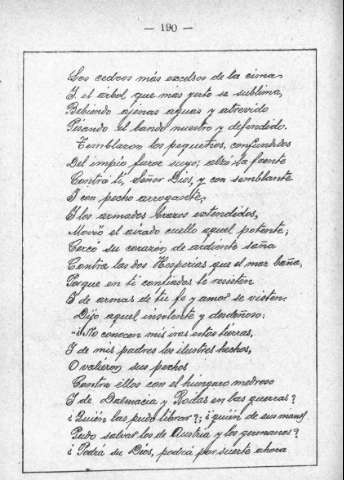 — 190 —
Los cedros más excelsos de la cima
Y el árbol que más yerto se sublima,
Bebiendo ajenas aguas y atrevido
Pisando el bando nuestro y defendido.
Temblaron los pequeños, confundidos
Del impío furor suyo; alzó la frente
Contra ti, Señor Dios, y con semblante
Y con pecho arrogante,
Y los armados brazos estendidos,
Movió el airado cuello aquel potente;
Cercó su corazón de ardiente saña
Contra las dos Hesperias que el mar baña,
Porque en ti confiadas le resisten
Y de armas de tu fe y amor se visten.
Dijo aquel insolente y desdeñoso:
"¿No conocen mis iras estas tierras,
Y de mis padres los ilustres hechos,
O valieron sus pechos
Contra ellos con el húngaro medroso
Y de Dalmacia y Rodas en las guerras?
¿Quién las pudo librar?; ¿quién de sus manos
Pudo salvar los de Austria y los germanos?
¿Podrá su Dios, podrá por suerte ahora